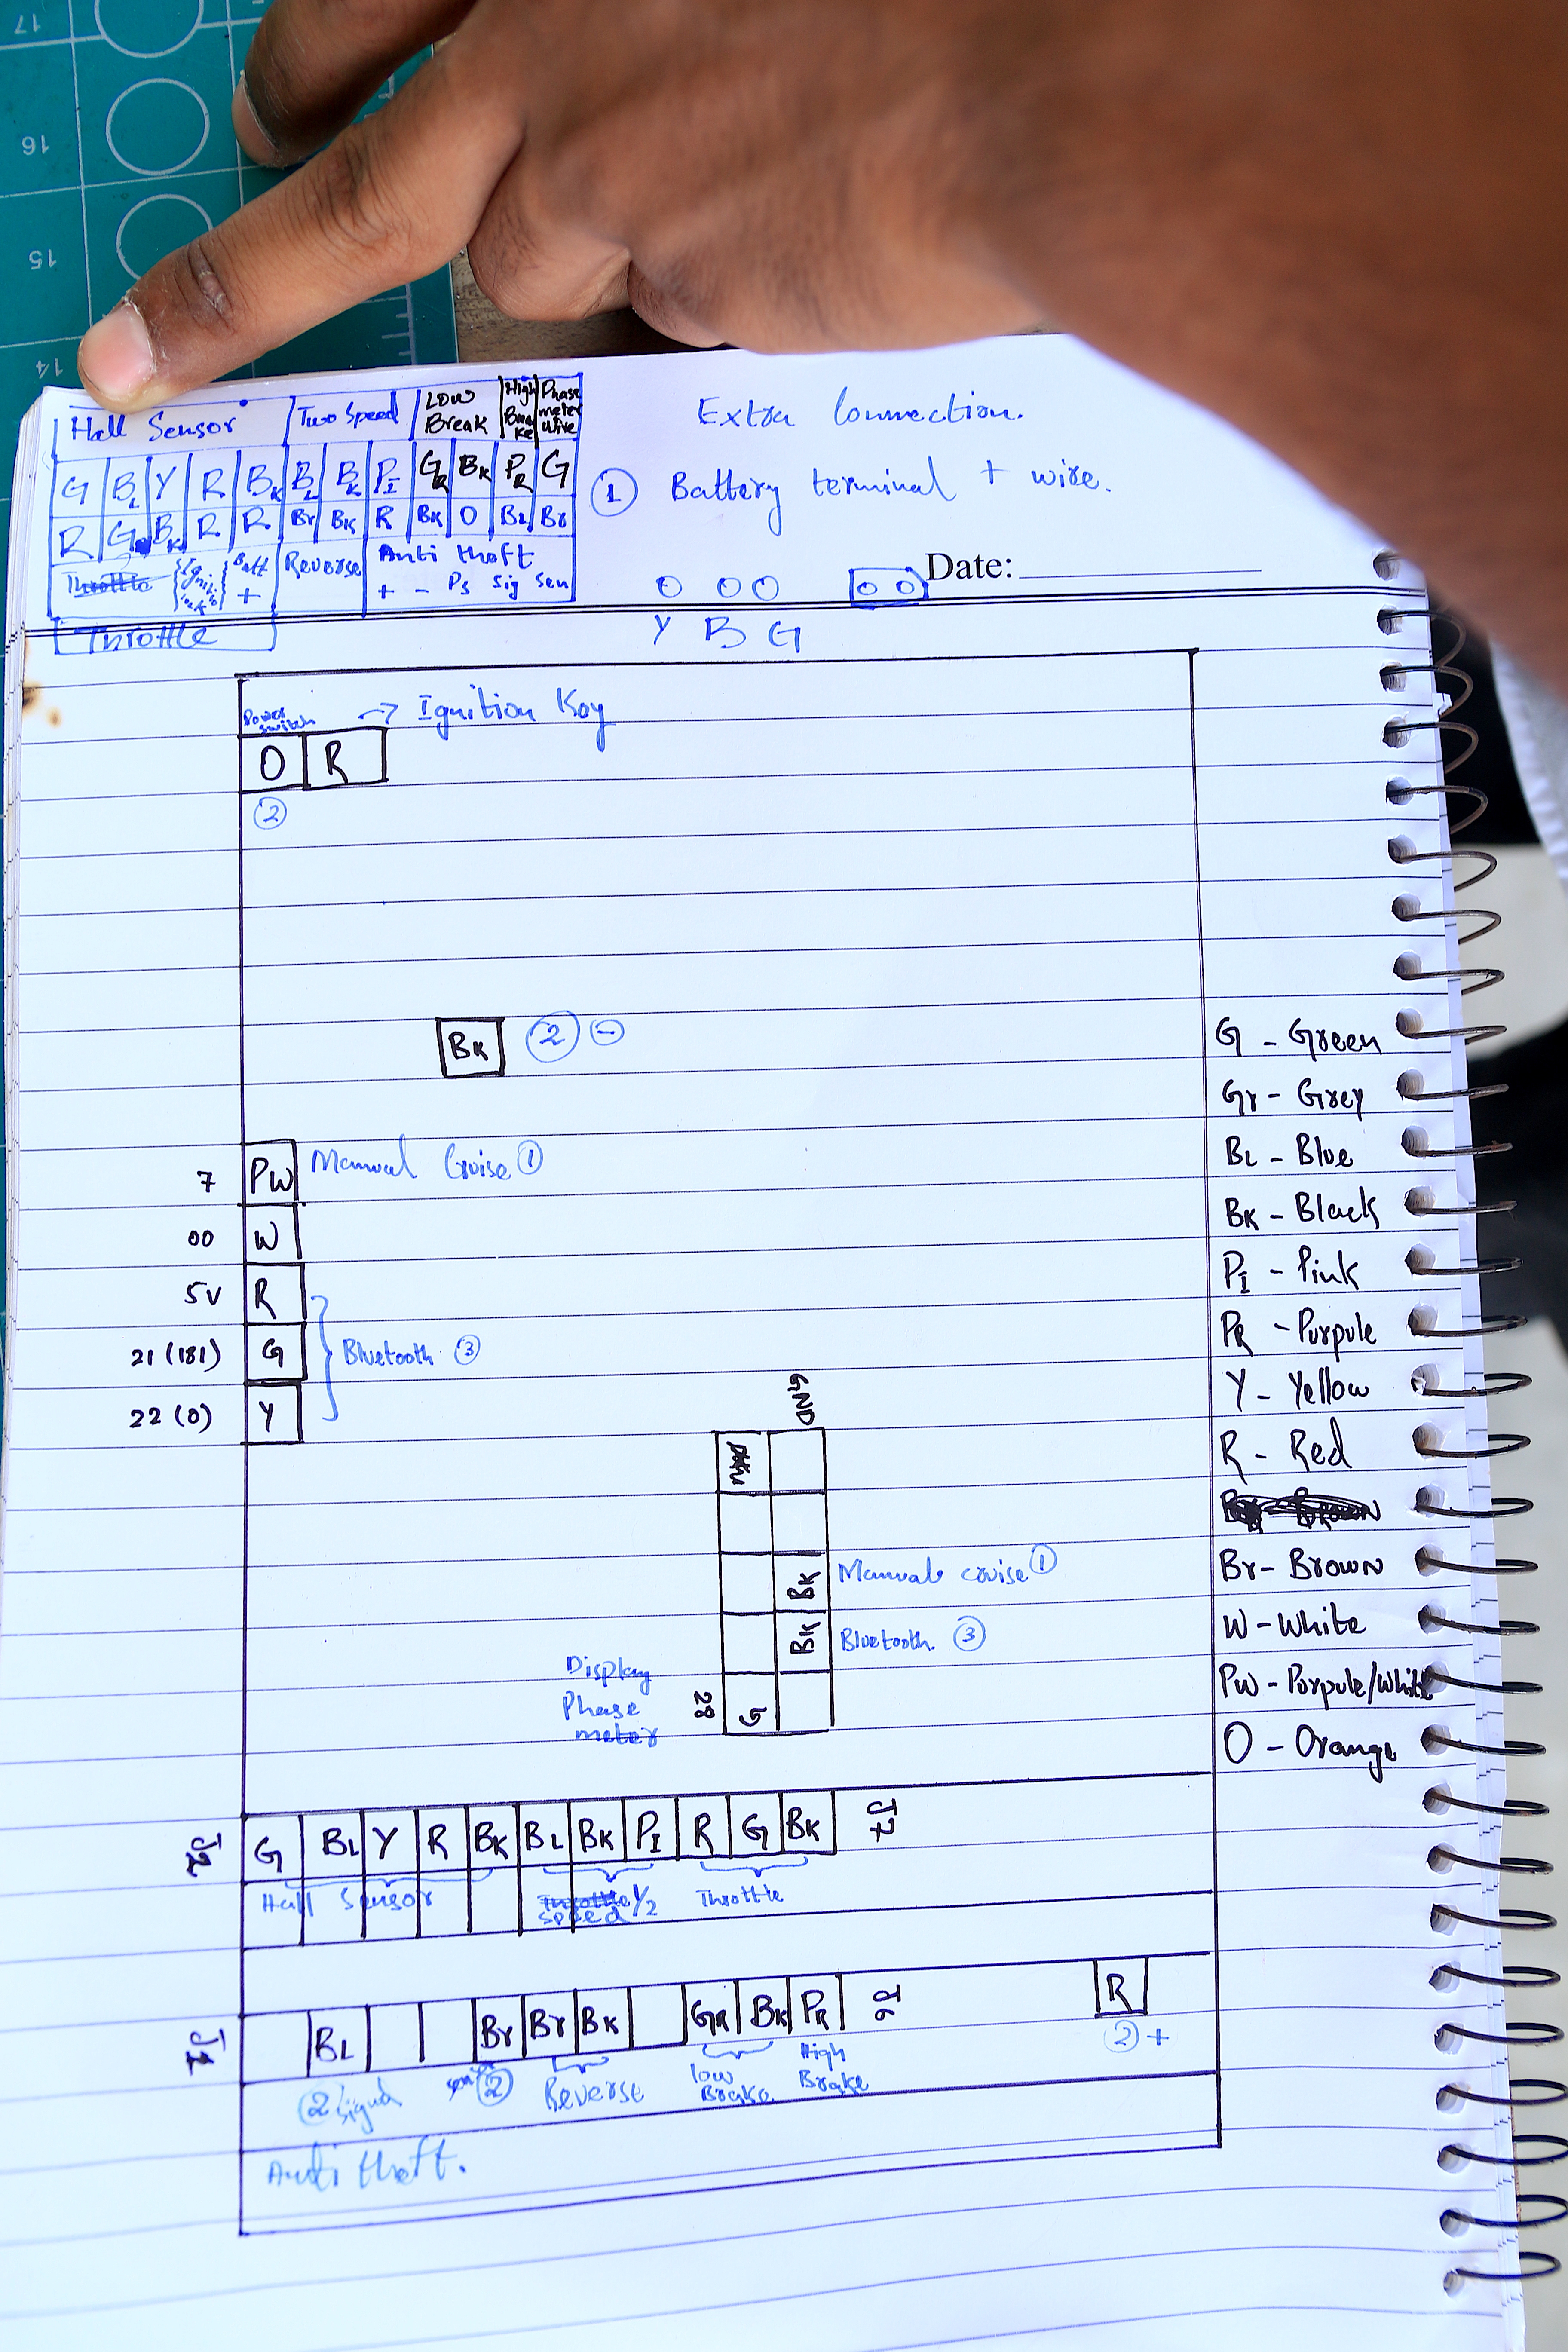 17
16
15
14
Hall Sensor Two Speed Low Break High Brake Phase meter wire
G BL Y R BK BL BK PI GR BK PR G
R G BK R R Br BK R BK O BL Br
Throttle Batt + Reverse Anti theft
+ - Ps sig sen
Throttle
Extra Connection.
① Battery terminal + wire.
Date:
Y B G
Power switch → Ignition Key
O R
②
BK ② -
7 PW Manual Cruise ①
00 W
5V R
21 (181) G Bluetooth ③
22 (0) Y
GND
BK Manual cruise ①
BK Bluetooth. ③
Display Phase meter 28 G
J2 G BL Y R BK BL BK PI R G BK J7
Hall Sensor Throttle speed 1/2 Throttle
J1 BL Br Br BK GR BK PR J6 R
② Signal ② Reverse low Brake High Brake ② +
Anti theft.
G - Green
Gr - Grey
BL - Blue
BK - Black
PI - Pink
PR - Purpule
Y - Yellow
R - Red
Br - Brown
W - White
PW - Purpule/White
O - Orange